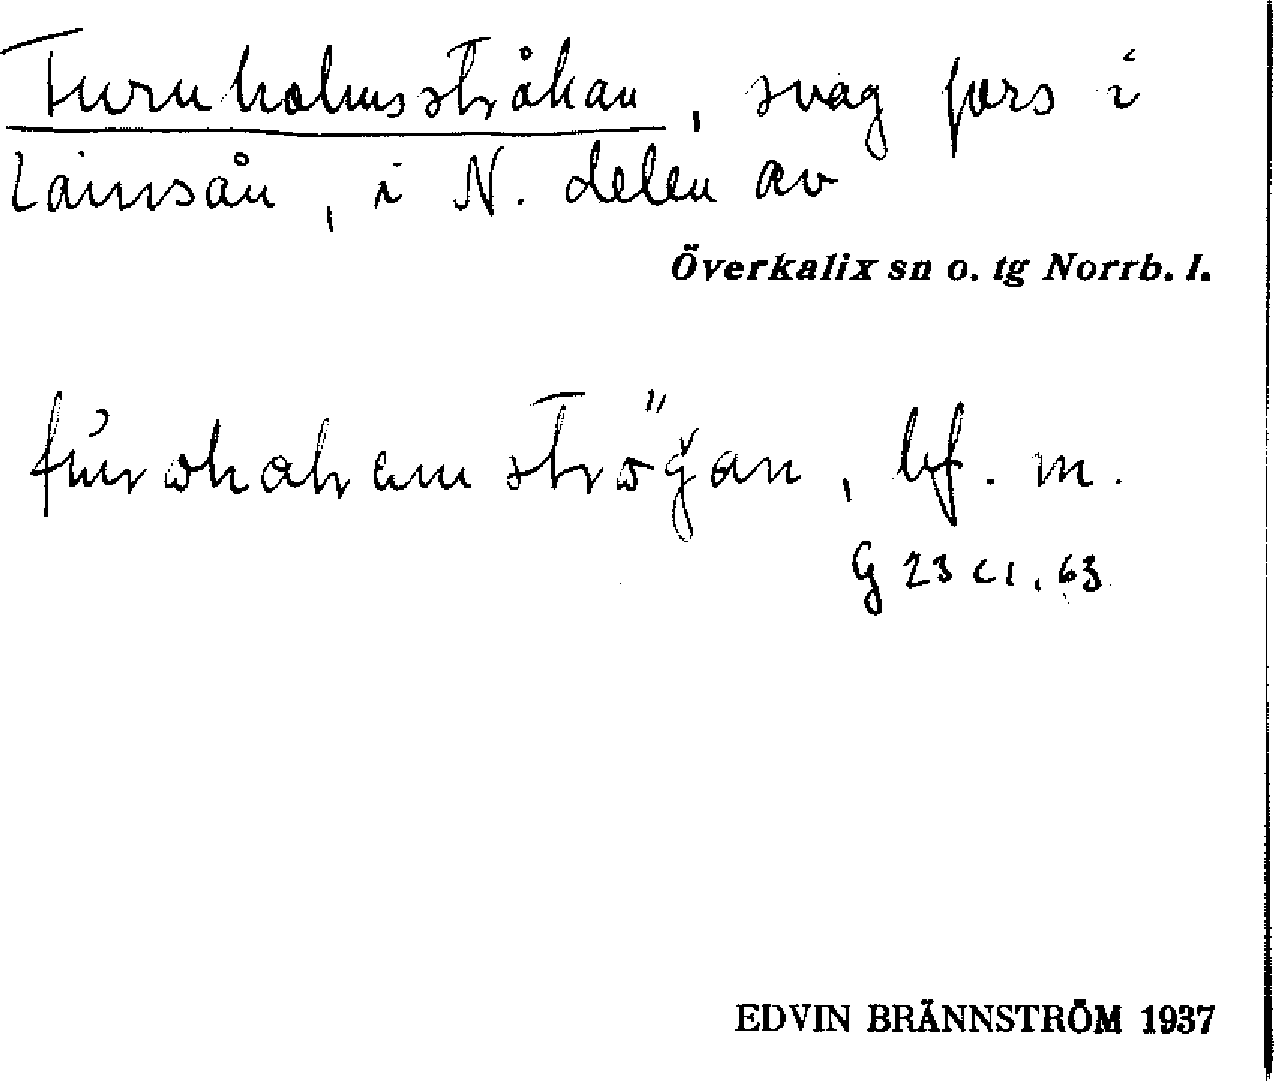 Furuholmsstråkan, svag fors i
Lainsån, i N. delen av
Överkalix sn o. tg Norrb. l.
bf. m.
G 23 c1. 63
EDVIN BRÄNNSTRÖM 1937